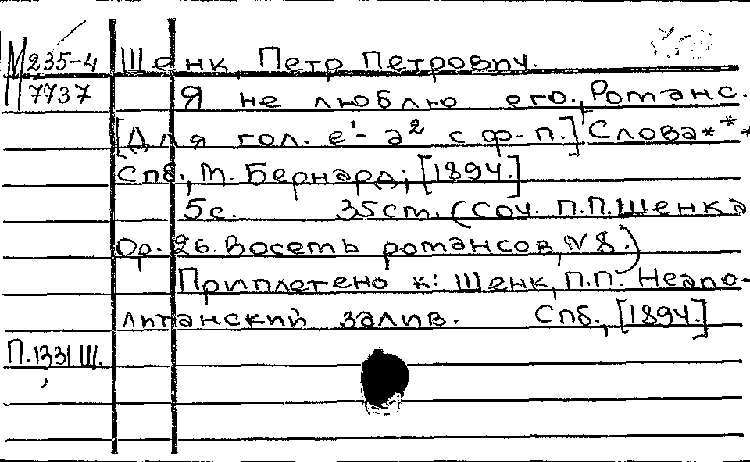 М 235-4 Шенк, Петр Петрович.
7737 Я не люблю его. Романс.
[Для гол. e¹-a² с ф-п.] Слова***
Спб., М. Бернард, [1894.]
5с. 35cm. (Соч. П.П.Шенка
Op. 26. Восемь романсов, № 8.)
Приплетено к: Шенк, П.П. Неапо-
литанский залив. Спб., [1894.]
П.1331Ш.